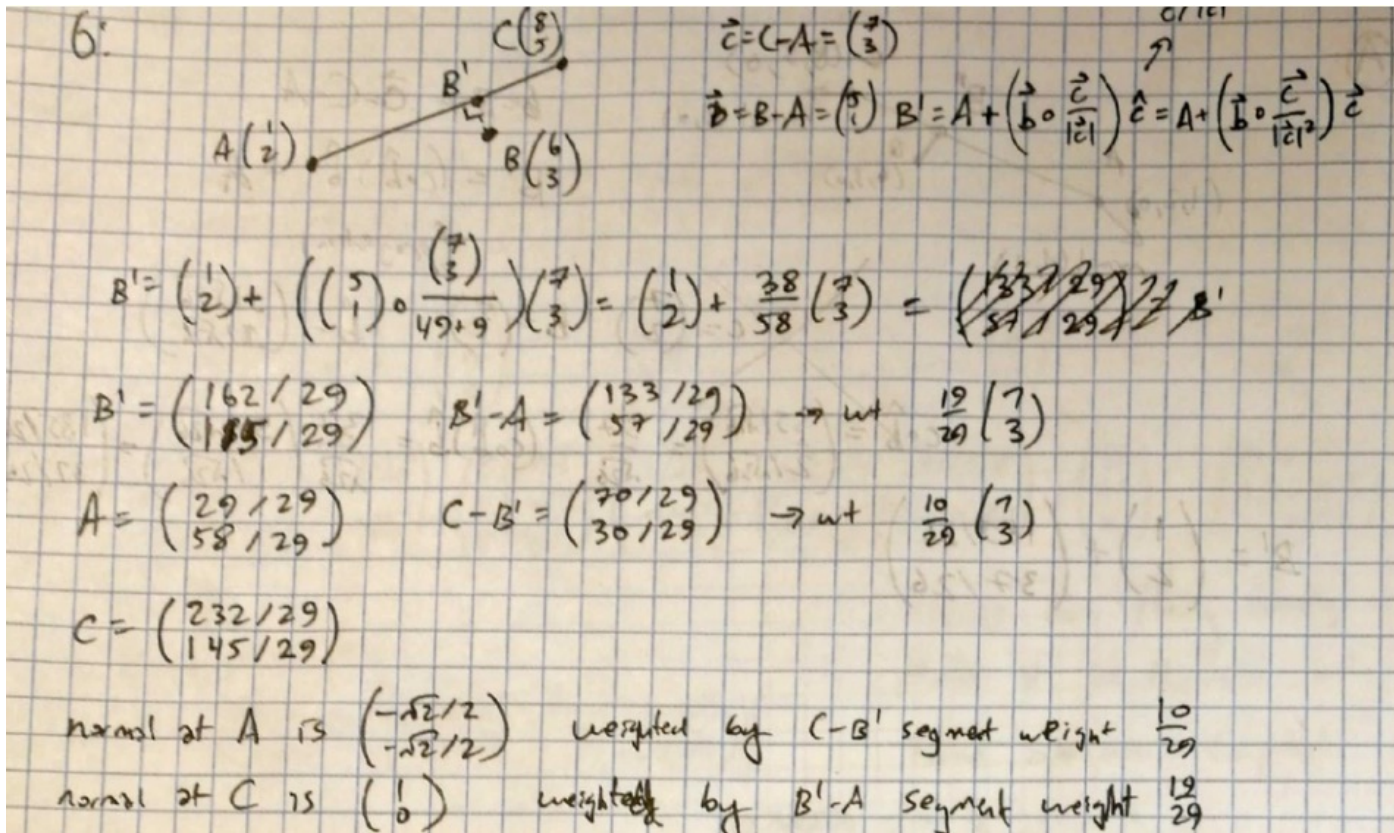 6:
C(8 5)
c⃗ = C-A = (7 3)
B'
A(1 2)
B(6 3)
b⃗ = B-A = (5 1) B' = A + (b⃗ ∘ c⃗/|c⃗|) ĉ = A + (b⃗ ∘ c⃗/|c⃗|²) c⃗
B' = (1 2) + ((5 1) ∘ (7 3)/49+9)(7 3) = (1 2) + 38/58 (7 3) =
B' = (162/29 115/29) B'-A = (133/29 57/29) → wt 19/29 (7 3)
A = (29/29 58/29) C-B' = (70/29 30/29) → wt 10/29 (7 3)
C = (232/29 145/29)
normal at A is (-√2/2 -√2/2) weighted by C-B' segment weight 10/29
normal at C is (1 0) weighted by B'-A segment weight 19/29